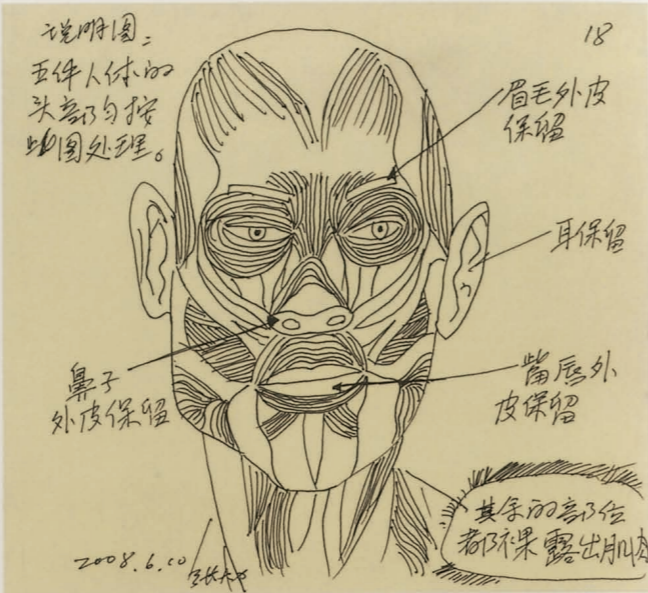 说明图:
五件人体的
头部均按
此图处理。
18
眉毛外皮
保留
耳保留
鼻子
外皮保留
嘴唇外
皮保留
其余的部位
都裸露出肌肉
2008.6.10